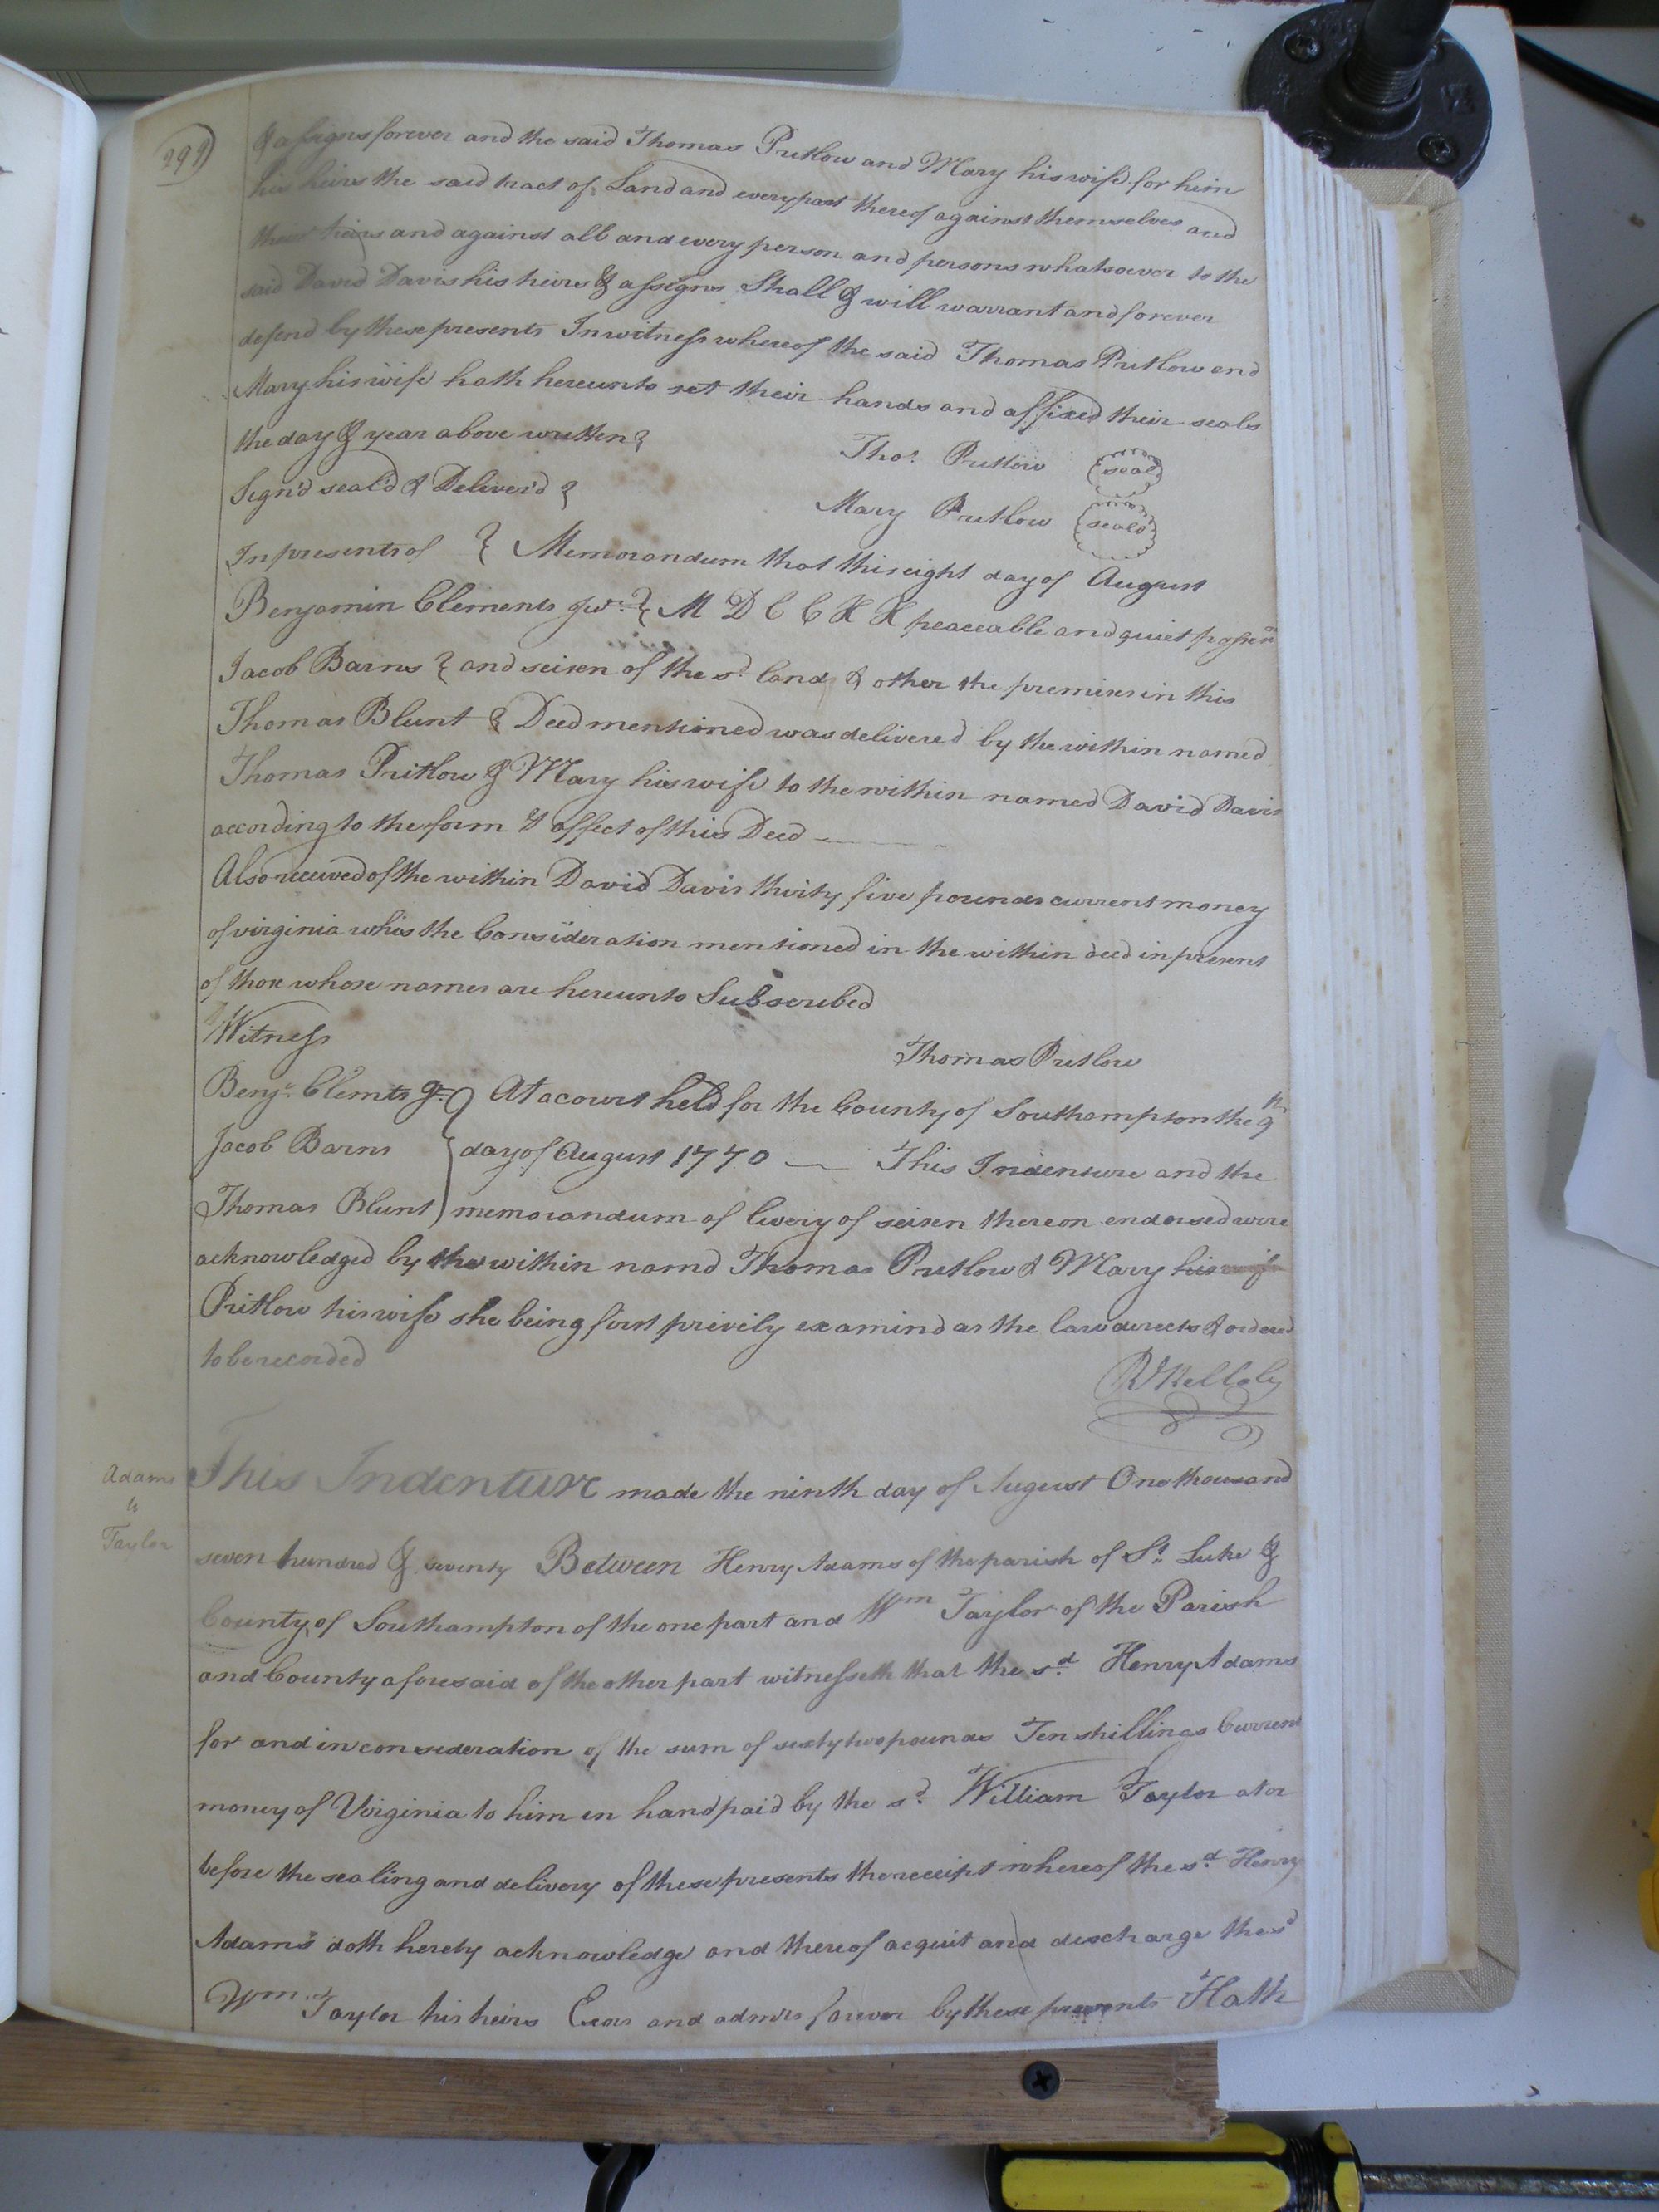 299
& assigns forever and the said Thomas Pritlow and Mary his wife for him
his heirs the said tract of Land and every part thereof against themselves and
their heirs and against all and every person and persons whatsoever to the
said David Davis his heirs & assigns Shall & will warrant and forever
defend by these presents In witness whereof the said Thomas Pritlow and
Mary his wife hath hereunto set their hands and affixed their seals
the day & year above written
Tho.s Pritlow (seal)
Sign'd seal'd & Deliver'd
Mary Pritlow (seals)
In presents of } Memorandum that this eight day of August
Benjamin Clements Jur. } M D C C X X peaceable and quiet
Jacob Barns } and seisen of the sd. land & other the premises in this
Thomas Blunt } Deed mentioned was delivered by the within named
Thomas Pritlow & Mary his wife to the within named David Davis
according to the form & affect of this Deed
Also received of the within David Davis thirty five pounds current money
of virginia whis the Consideration mentioned in the within deed in present
of those whose names are hereunto Subscribed
Witness
Thomas Pritlow
Benj. Clemts Jr. } At a court held for the County of Southampton the 9th
Jacob Barns } day of August 1770 — This Indenture and the
Thomas Blunt } memorandum of livery of seisen thereon endorsed were
acknowledged by the within namd Thomas Pritlow & Mary his wife
Pritlow his wife she being first privily examind as the law derects & ordered
to be recorded
Adams
to
Taylor
This Indenture made the ninth day of August One thousand
seven hundred & seventy Between Henry Adams of the parish of St. Luke &
County of Southampton of the one part and Wm Taylor of the Parish
and County aforesaid of the other part witnesseth that the sd. Henry Adams
for and in consideration of the sum of sixty two pounds Ten shillings Current
money of Virginia to him in hand paid by the sd. William Taylor at or
before the sealing and delivery of these presents the receipt whereof the sd. Henry
Adams doth hereby acknowledge and thereof acquit and discharge the sd
Wm. Taylor his heirs Exors and admrs forever by these presents Hath